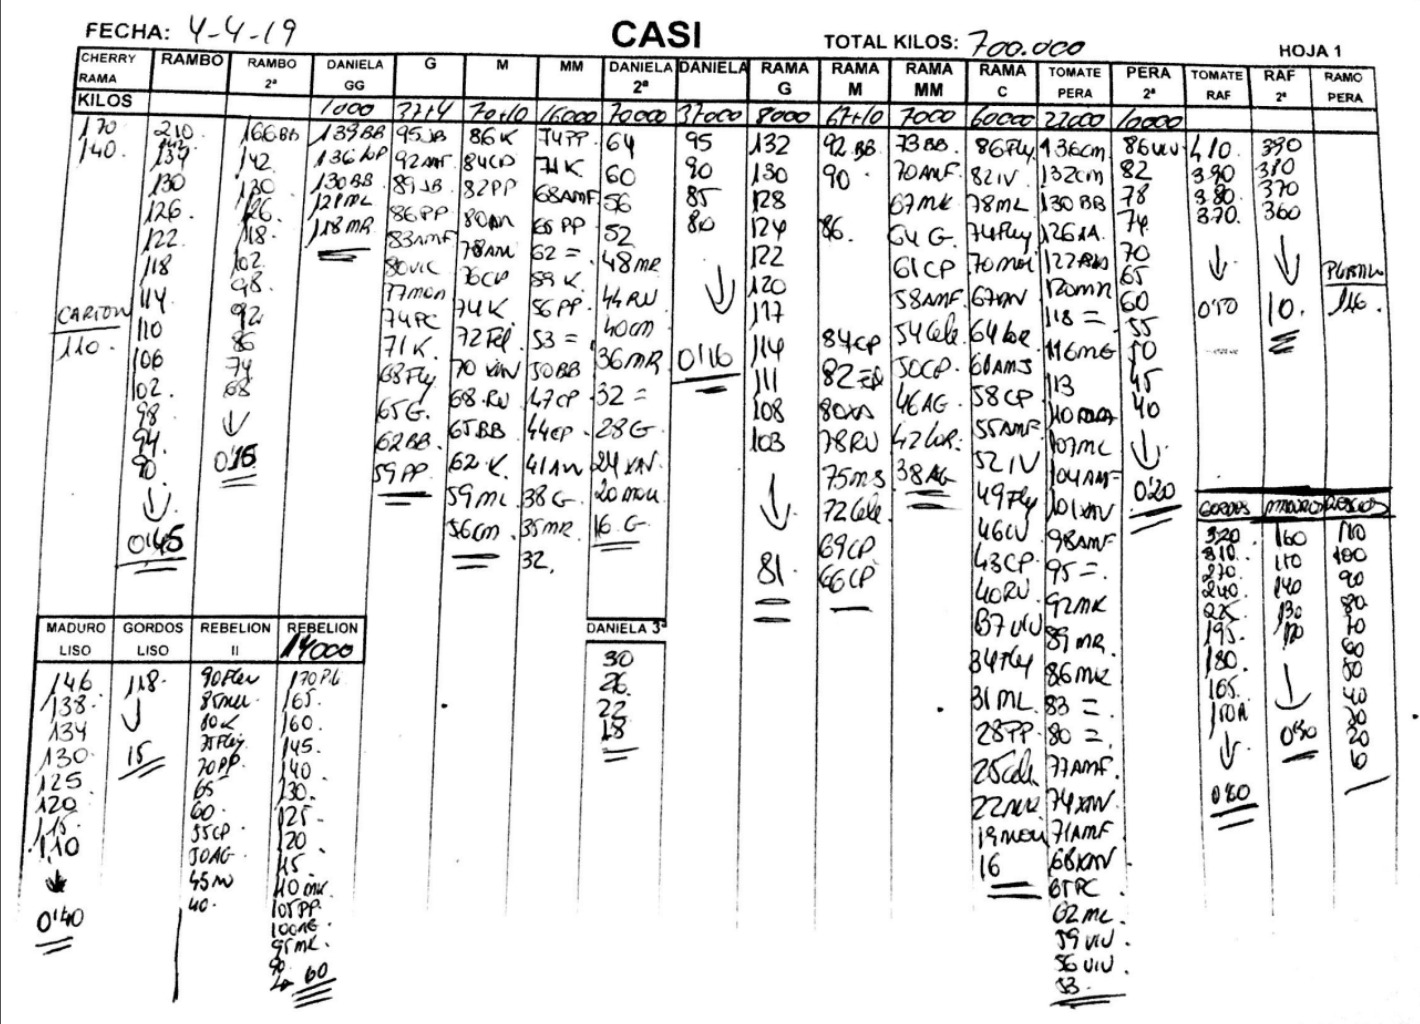 FECHA: 4-4-19
CASI
TOTAL KILOS: 700.000
HOJA 1
CHERRY RAMA
RAMBO
RAMBO 2ª
DANIELA GG
G
M
MM
DANIELA 2ª
DANIELA
RAMA G
RAMA M
RAMA MM
RAMA C
TOMATE PERA
PERA 2ª
TOMATE RAF
RAF 2ª
RAMO PERA
KILOS
1000
37+4
70+10
16000
70000
37000
8000
67+10
7000
60000
22000
10000
170
140.
CARTON
110.
210.
142
134
130
126.
122.
118
114
110
106
102.
98
94
90
0'45
166BB
142.
130
126.
118.
102
98.
92
86
74
68
0'15
139BB
136
130BB
121ML
118MR
95JB
92AMF
89JB
86PP
83AMF
80VIC
77MON
74PC
71K.
68Fly
65G.
62BB.
59PP
86K
84CP
82PP
80
78AM
76CP
74K
72Fel
70 XAN
68.RU
65BB
62.K.
59ML
56CM
74PP
71K
68AMF
65 PP
62 =
59 K
56 PP
53 =
50BB
47CP
44CP
41AN
38 G.
35MR
32.
64
60
56
52
48MR
44RU
40CM
36MR
32 =
28G
24XAN
20MOU
16 G
95
90
85
80
0'16
132
130
128
124
122
120
117
114
111
108
103
81
92 BB
90
86.
84CP
82
80XA
78RU
75MJ
72Cele
69CP
66CP
73BB
70AMF
67MK
64 G.
61CP
58AMF
54Cele
50CP
46AG
42LOR
38AG
86Fly
82IV
78ML
74Fly
70MOU
67XAN
64LOR
60AMJ
58CP
55AMF
52IV
49Fly
46IV
43CP
40RU
37VIV
34Fly
31ML
28PP
25Cele
22MK
19MOU
16
136CM
132CM
130BB
126XA
122
120MR
118 =
116MG
113
110
107ML
104AMF
101XAN
98AMF
95 =
92MK
89MR
86MK
83 =
80 =
77AMF
74XAN
71AMF
68XAN
65PC
62ML
59VIV
56VIV
53
86VIV
82
78
74
70
65
60
55
50
45
40
0'20
410.
390
380
370.
0'50
390
380
370
360
10.
116.
GORDOS
320
310
270
240
225
195
180.
165
150
0'60
MADUROS
160
150
140
130
120
0'50
110
100
90
80
70
60
50
40
30
20
10
MADURO LISO
146
138.
134
130
125
120
115
110
0'40
GORDOS LISO
118
15
REBELION II
90
85
80K
75Fly
70PP
65
60
55CP
50AG
45
40.
REBELION
14000
170
165
160.
145
140
130
125
120
115
110 MK
105PP
100AG
95MK
90
60
DANIELA 3ª
30
26
22
18